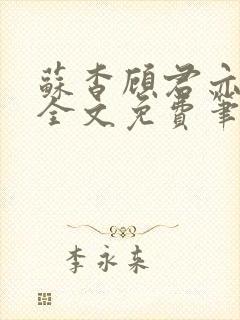 蘇杳顾君亦
全文免費筆
李永来